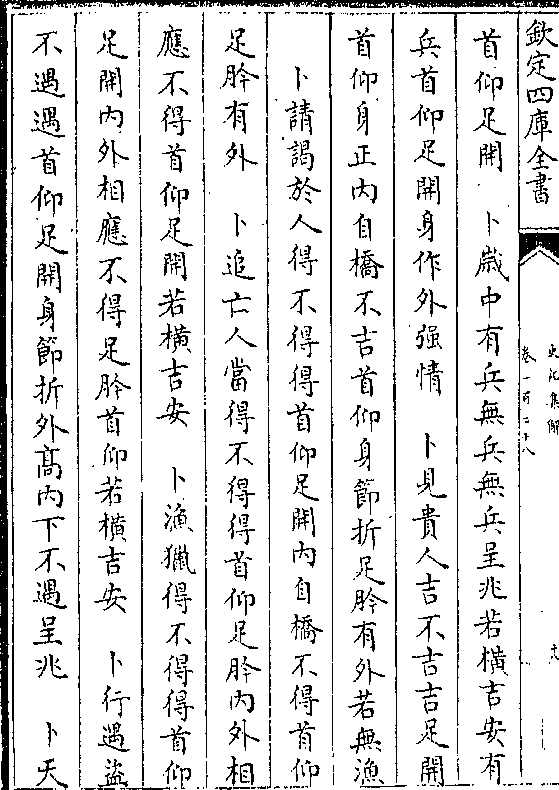 欽定四庫全書
史記集解
卷一百二十八
首仰足開　卜歲中有兵無兵無兵呈兆若橫吉安有
兵首仰足開身作外强情　卜見貴人吉不吉吉足開
首仰身正内自橋不吉首仰身節折足肣有外若無漁
卜請謁於人得不得得首仰足開内自橋不得首仰
足肣有外　卜追亡人當得不得得首仰足肣内外相
應不得首仰足開若橫吉安　卜漁獵得不得得首仰
足開内外相應不得足肣首仰若橫吉安　卜行遇盜
不遇遇首仰足開身節折外髙内下不遇呈兆　卜天